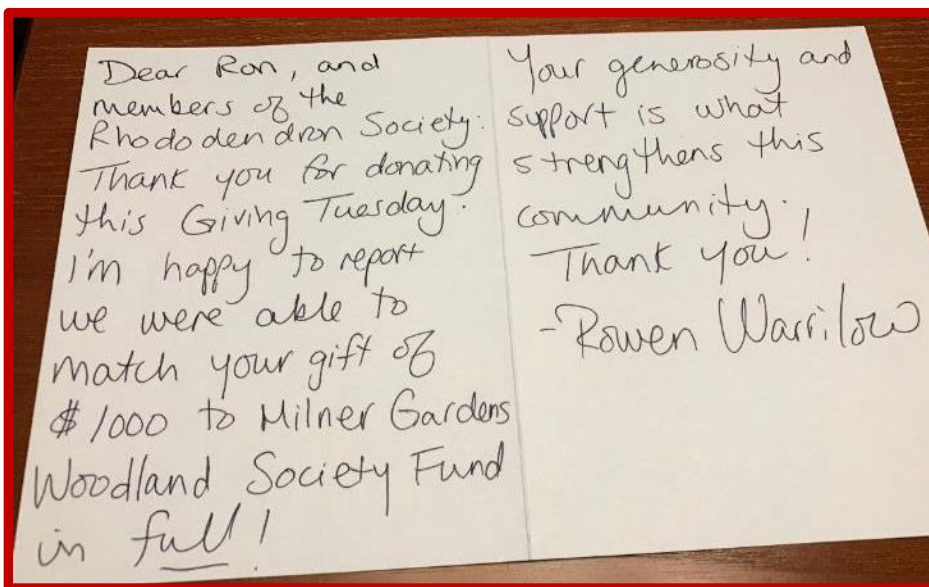 Dear Ron, and
members of the
Rhododendron Society.
Thank you for donating
this Giving Tuesday.
I'm happy to report
we were able to
match your gift of
$1000 to Milner Gardens
Woodland Society Fund
in full!
Your generosity and
support is what
strengthens this
community.
Thank you!
-Rowen Warrilow